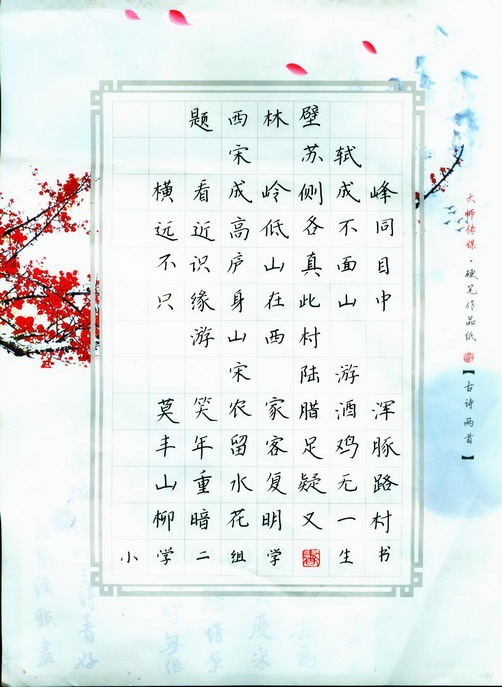 题西林壁
宋 苏轼
横看成岭侧成峰
远近高低各不同
不识庐山真面目
只缘身在此山中
游山西村
宋 陆游
莫笑农家腊酒浑
丰年留客足鸡豚
山重水复疑无路
柳暗花明又一村
小学二组学生书
大师传媒·硬笔作品纸
【古诗两首】